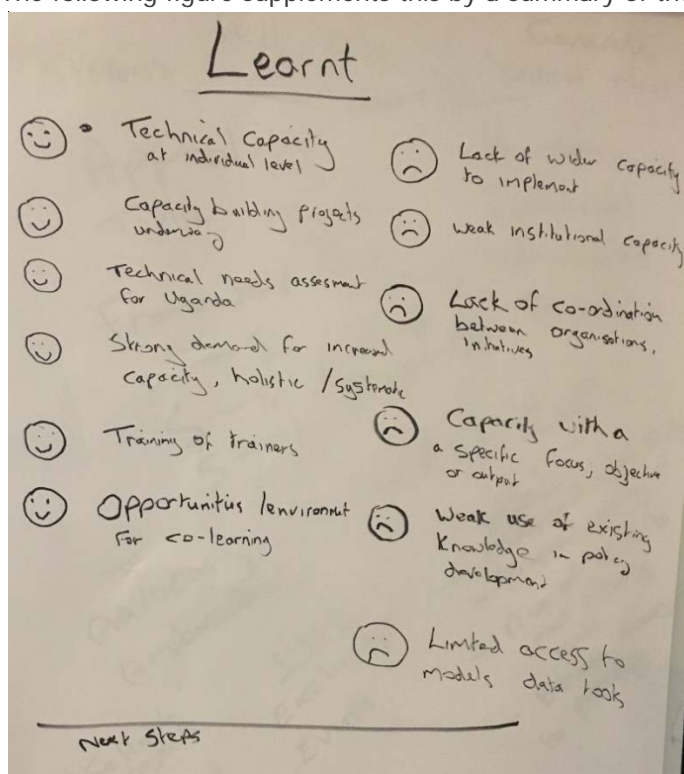 The following figure supplements this by a summary of th
Learnt
Technical Capacity
at individual level
Capacity building projects
underway
Technical needs assesment
for Uganda
Strong demand for increased
capacity, holistic / systematic
Training of trainers
Opportunities /environment
for co-learning
Lack of wider capacity
to implement
Weak institutional capacity
Lack of co-ordination
between organisations,
initiatives
Capacity with a
a specific focus, objective
or output
Weak use of existing
knowledge in policy
development
Limited access to
models data tools
Next Steps